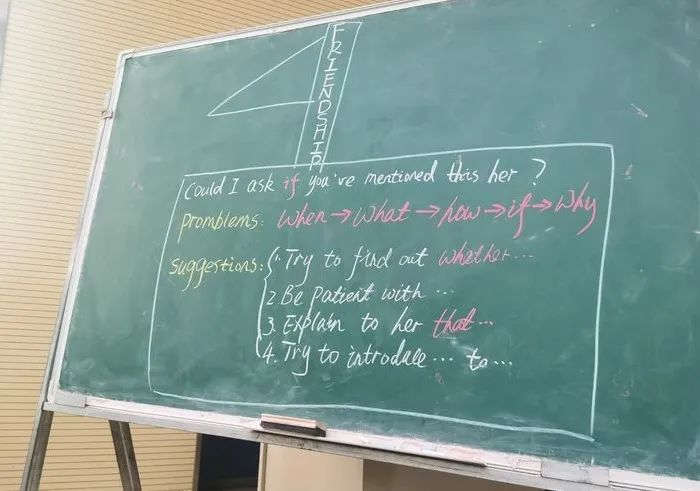 FRIENDSHIP
Could I ask if you've mentioned this her ?
promblems: When→What→how→if→Why
suggestions: 1. Try to find out whether...
2. Be Patient with ...
3. Explain to her that...
4. Try to introduce... to...